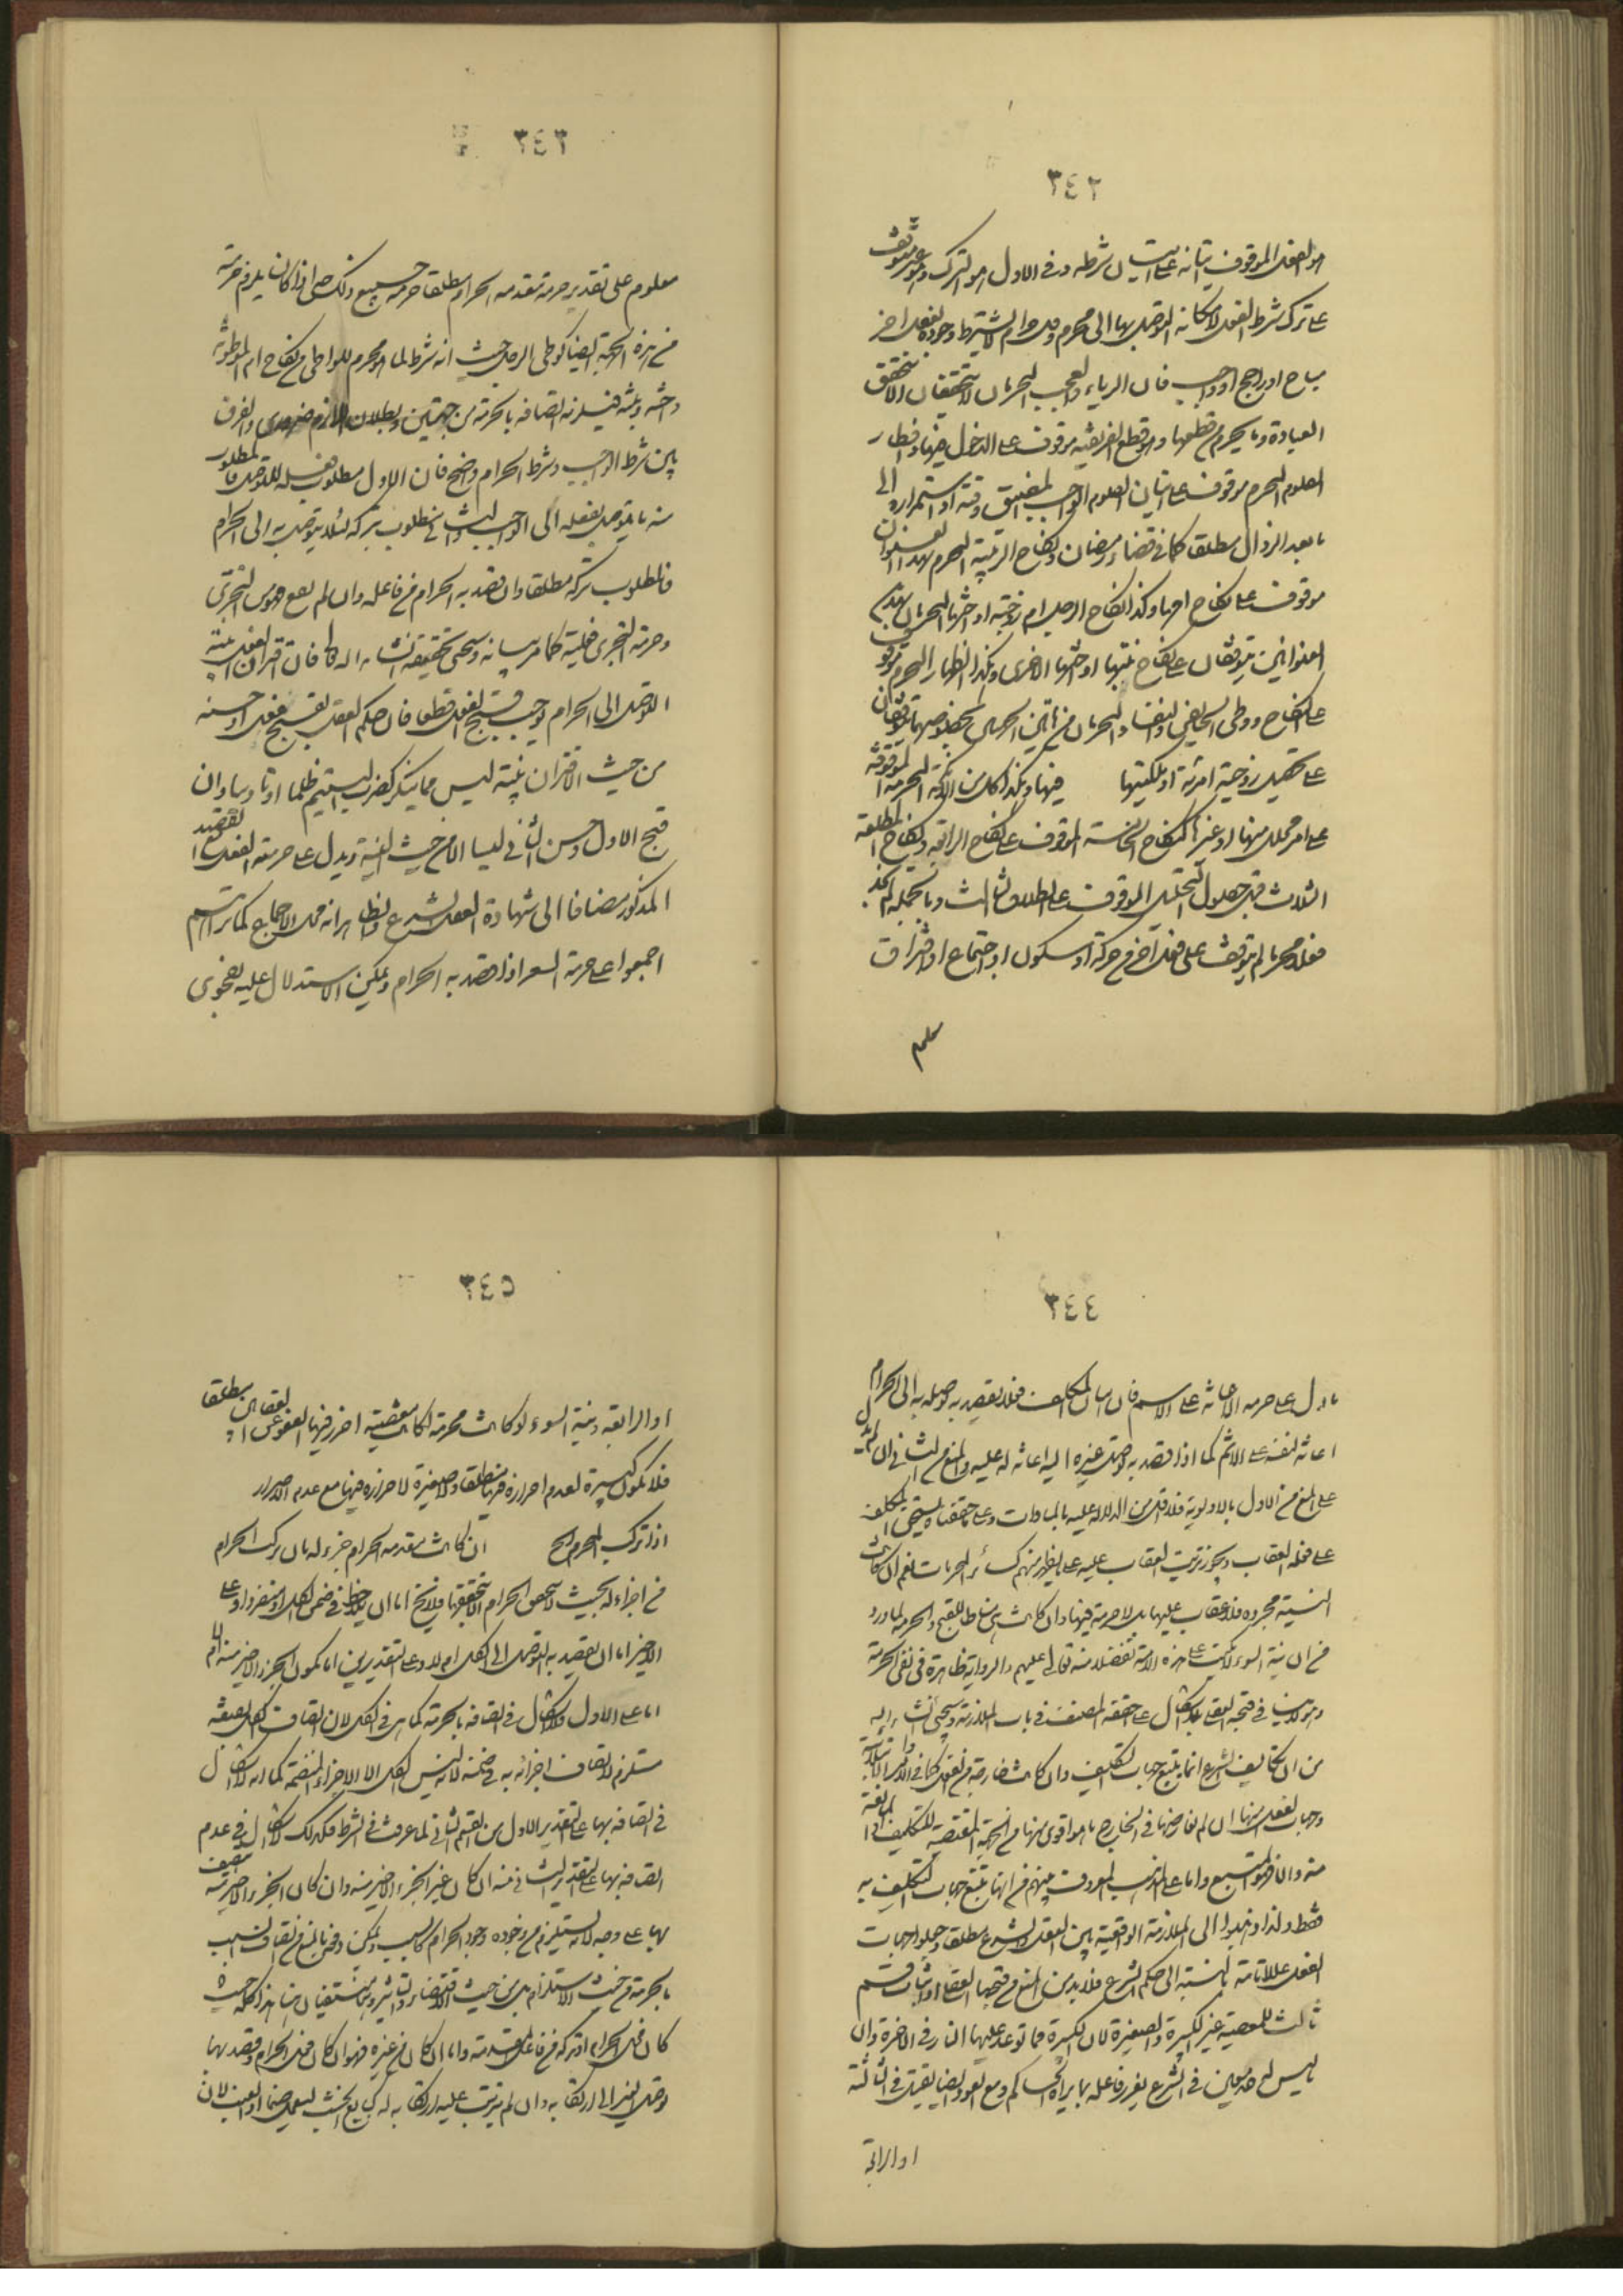 ٣٤٢
هو الفعل الموقوف اتيانه على اتيان شرطه وفى الاول هو الترك وهو غير متوقف
على ترك شرط الفعل لامكانه التوصل بها الى محرم ولا يشترط وجوده لفعل اخر
مباح او راجح او واجب فان الرياء والعجب المحرمان لا يتحققان الا بتحقق
العبادة وما يحرم قطعها وهو قطع الفريضة موقوف على الدخل فيها وافطار
الصوم المحرم موقوف على اتيان الصوم الواجب المضيق وقته او استمراره الى
ما بعد الزوال مطلقا كما فى قضاء رمضان ونكاح الربيبة المحرم بهذا العنوان
موقوف على نكاح امها وكذا نكاح الرجل ام زوجته او اختها المحرمان بهذين
العنوانين يتوقفان على نكاح بنتها او اختها الاخرى وهكذا الظهار المحرم موقوف
على النكاح ووطى الحائض والنفساء المحرمان من هاتين الجهتين بخصوصهما يتوقفان
على تحصيل زوجية امرئة او ملكيتها فيها وهكذا كل من الانكحة المحرمة الموقوفة
على امر محلل منها او غيرها كنكاح الخامسة الموقوف على نكاح الرابعة ونكاح المطلقة
الثلاث قبل حصول التحلل الموقوف على الطلاق الثالث وبالجملة لم نجد
فعلا محرما لم يتوقف على فعل آخر من حركة او سكون او اجتماع او افتراق
معلوم
٣٤٣
معلوم على تقدير حرمة مقدمة الحرام مطلقا حرمة جميع ذلك حتى اذا كان يلزم حرمة
من هذه الجهة ايضا كوطى الرجل حيث انه شرط لما هو محرم للواطى من نكاح ام الموطوئة
واخته وبنته فيلزم اتصافه بالحرمة من جهتين وبطلان اللازم ضرورى والفرق
بين شرط الواجب وشرط الحرام واضح فان الاول مطلوب فعله للتوصل فالمطلوب
منه ما يتوصل بفعله الى الواجب والثانى مطلوب تركه لئلا يتوصل به الى الحرام
فالمطلوب تركه مطلقا وان قصد به الحرام من فاعله وان لم يقع فهو من التجرى
وحرمة التجرى فعلية كما مر بيانه وسيجئ تحقيقه انشاء الله تعالى فان اقتران الفعل بنية
التوصل الى الحرام يوجب قبح الفعل قطعا فان حكم العقل بقبح فعل او حسنه
من حيث الاقتران بنية ليس مما ينكر كضرب اليتيم ظلما او تاديبا وان
قبح الاول وحسن الثانى ليسا الا من حيث النية ويدل على حرمة الفعل مع القصد
المذكور مضافا الى شهادة العقل الشرع والظاهر انه محل الاجماع كما ترى انهم
اجمعوا على حرمة السفر اذا قصد به الحرام ويمكن الاستدلال عليه بفحوى
٣٤٤
ما دل على حرمة الاعانة على الاثم فان اتيان المكلف فعلا يقصد به توصله به الى الحرام
اعانة لنفسه على الاثم كما اذا قصد به توصل غيره اليه اعانة له عليه والمنع من الثانى ان لم يدل
على المنع من الاول بالاولوية فلا اقل من الدلالة عليه بالمساوات وعلى ما حققناه يستحق المكلف
على فعله العقاب ويجوز ترتيب العقاب عليه على ما يظهر منهم كسائر المحرمات نعم ان كانت
النية مجرده فلا عقاب عليها بل لا حرمة فيها وان كانت هى مناط للقبح والحرمة لما ورد
من ان نية السوء لا تكتب على هذه الامة تفضلا منه تعالى عليهم والرواية ظاهرة فى نفى الحرمة
وهو لا ينافى قبحه العقلى على ما حققه المصنف فى باب الملازمة وسيجئ انشاء اله
من ان تكاليف الشرع انما يتبع جهات التكليف وان كانت خارجة من الفعل كما فى الاوامر الابتلائية
وجهات الفعل منها ان لم يعارضها فى الخارج ما هو اقوى منها من الجهة المقتضية للتكليف او المانعة
منه والا فهو المتبع واما على المذهب المعروف بينهم من انها تتبع جهات التكليف به
فقط ولذا ذهبوا الى الملازمة الواقعية بين العقل والشرع مطلقا وجعلوا جهات
الفعل عللا تامة بالنسبة الى حكم الشرع فلا بد من المنع من قبحها العقلى او اثبات قسم
ثالث للمعصية غير الكبيرة والصغيرة لان الكبيرة مما توعد عليها النار فى الاخرة وان
ليس له حد معين فى الشرع يعزر فاعله بما يراه الحاكم ومع العود ايضا يقتل فى الثالثة
او الرابعة
٣٤٥
او الرابعة ونية السوء لو كانت محرمة لكانت معصية اخرز فيها العفو عن العقاب مطلقا
فلا تكون كبيرة لعدم احرازه فيها مطلقا ولا صغيرة لاحرازه فيها مع عدم الاصرار
اذا ترك المحرم الخ ان كانت مقدمة الحرام جزء له بان تركب الحرام
من اجزاء له بحيث لا يتحقق الحرام الا بتحققها فلا يخ اما ان يلاحظ فى ضمن الكل او منفردا وعلى
الاخير اما ان يقصد به التوصل الى الكل ام لا وعلى التقديرين اما يكون الجزء الاخير منه ام لا
اما على الاول فلا اشكال فى اتصافه بالحرمة كما هى فى الكل لان اتصاف الكل بصفة
مستلزم لاتصاف اجزائه به فى ضمنه لانه ليس الكل الا الاجزاء المنضمة كما انه لا اشكال
فى اتصافه بها على التقدير الاول من القسم الثانى لما عرفت فى الشرط فكذلك لا اشكال فى عدم
اتصافه بها على التقدير الثانى منه ان كان غير الجزء الاخير منه وان كان الجزء الاخير منه يتصف
بها على وجه لانه يستلزم من وجوده وجود الحرام كالسبب ويمكن دفعه بالمنع من اتصاف السبب
بالحرمة من حيث الاستلزام بل من حيث الاقتضاء والتاثير وهما منتفيان هنا هذا كله حيث
كان فعل الحرام او تركه من فاعل المقدمة واما ان كان من غيره فهو ان كان فعل الحرام وقصد بها
توصل الغير الى ارتكابه وان لم يترتب عليه ارتكابه له كبايع الخشب ليعمل صنما او العنب لان